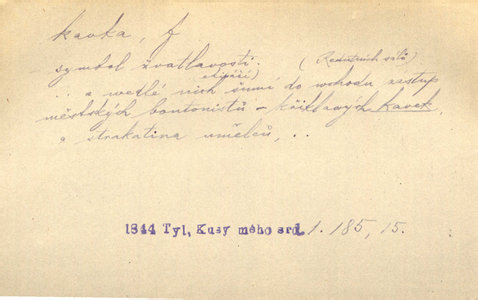 kavka, f
symbol žvatlavosti.
(Redutních sálů
.. a vedlé nich šumí do vchodu zástup
městských bontonistů – křiklavých kavek,
a strakatina umělců, ..
1844 Tyl, Kusy mého srd. 1. 185, 15.